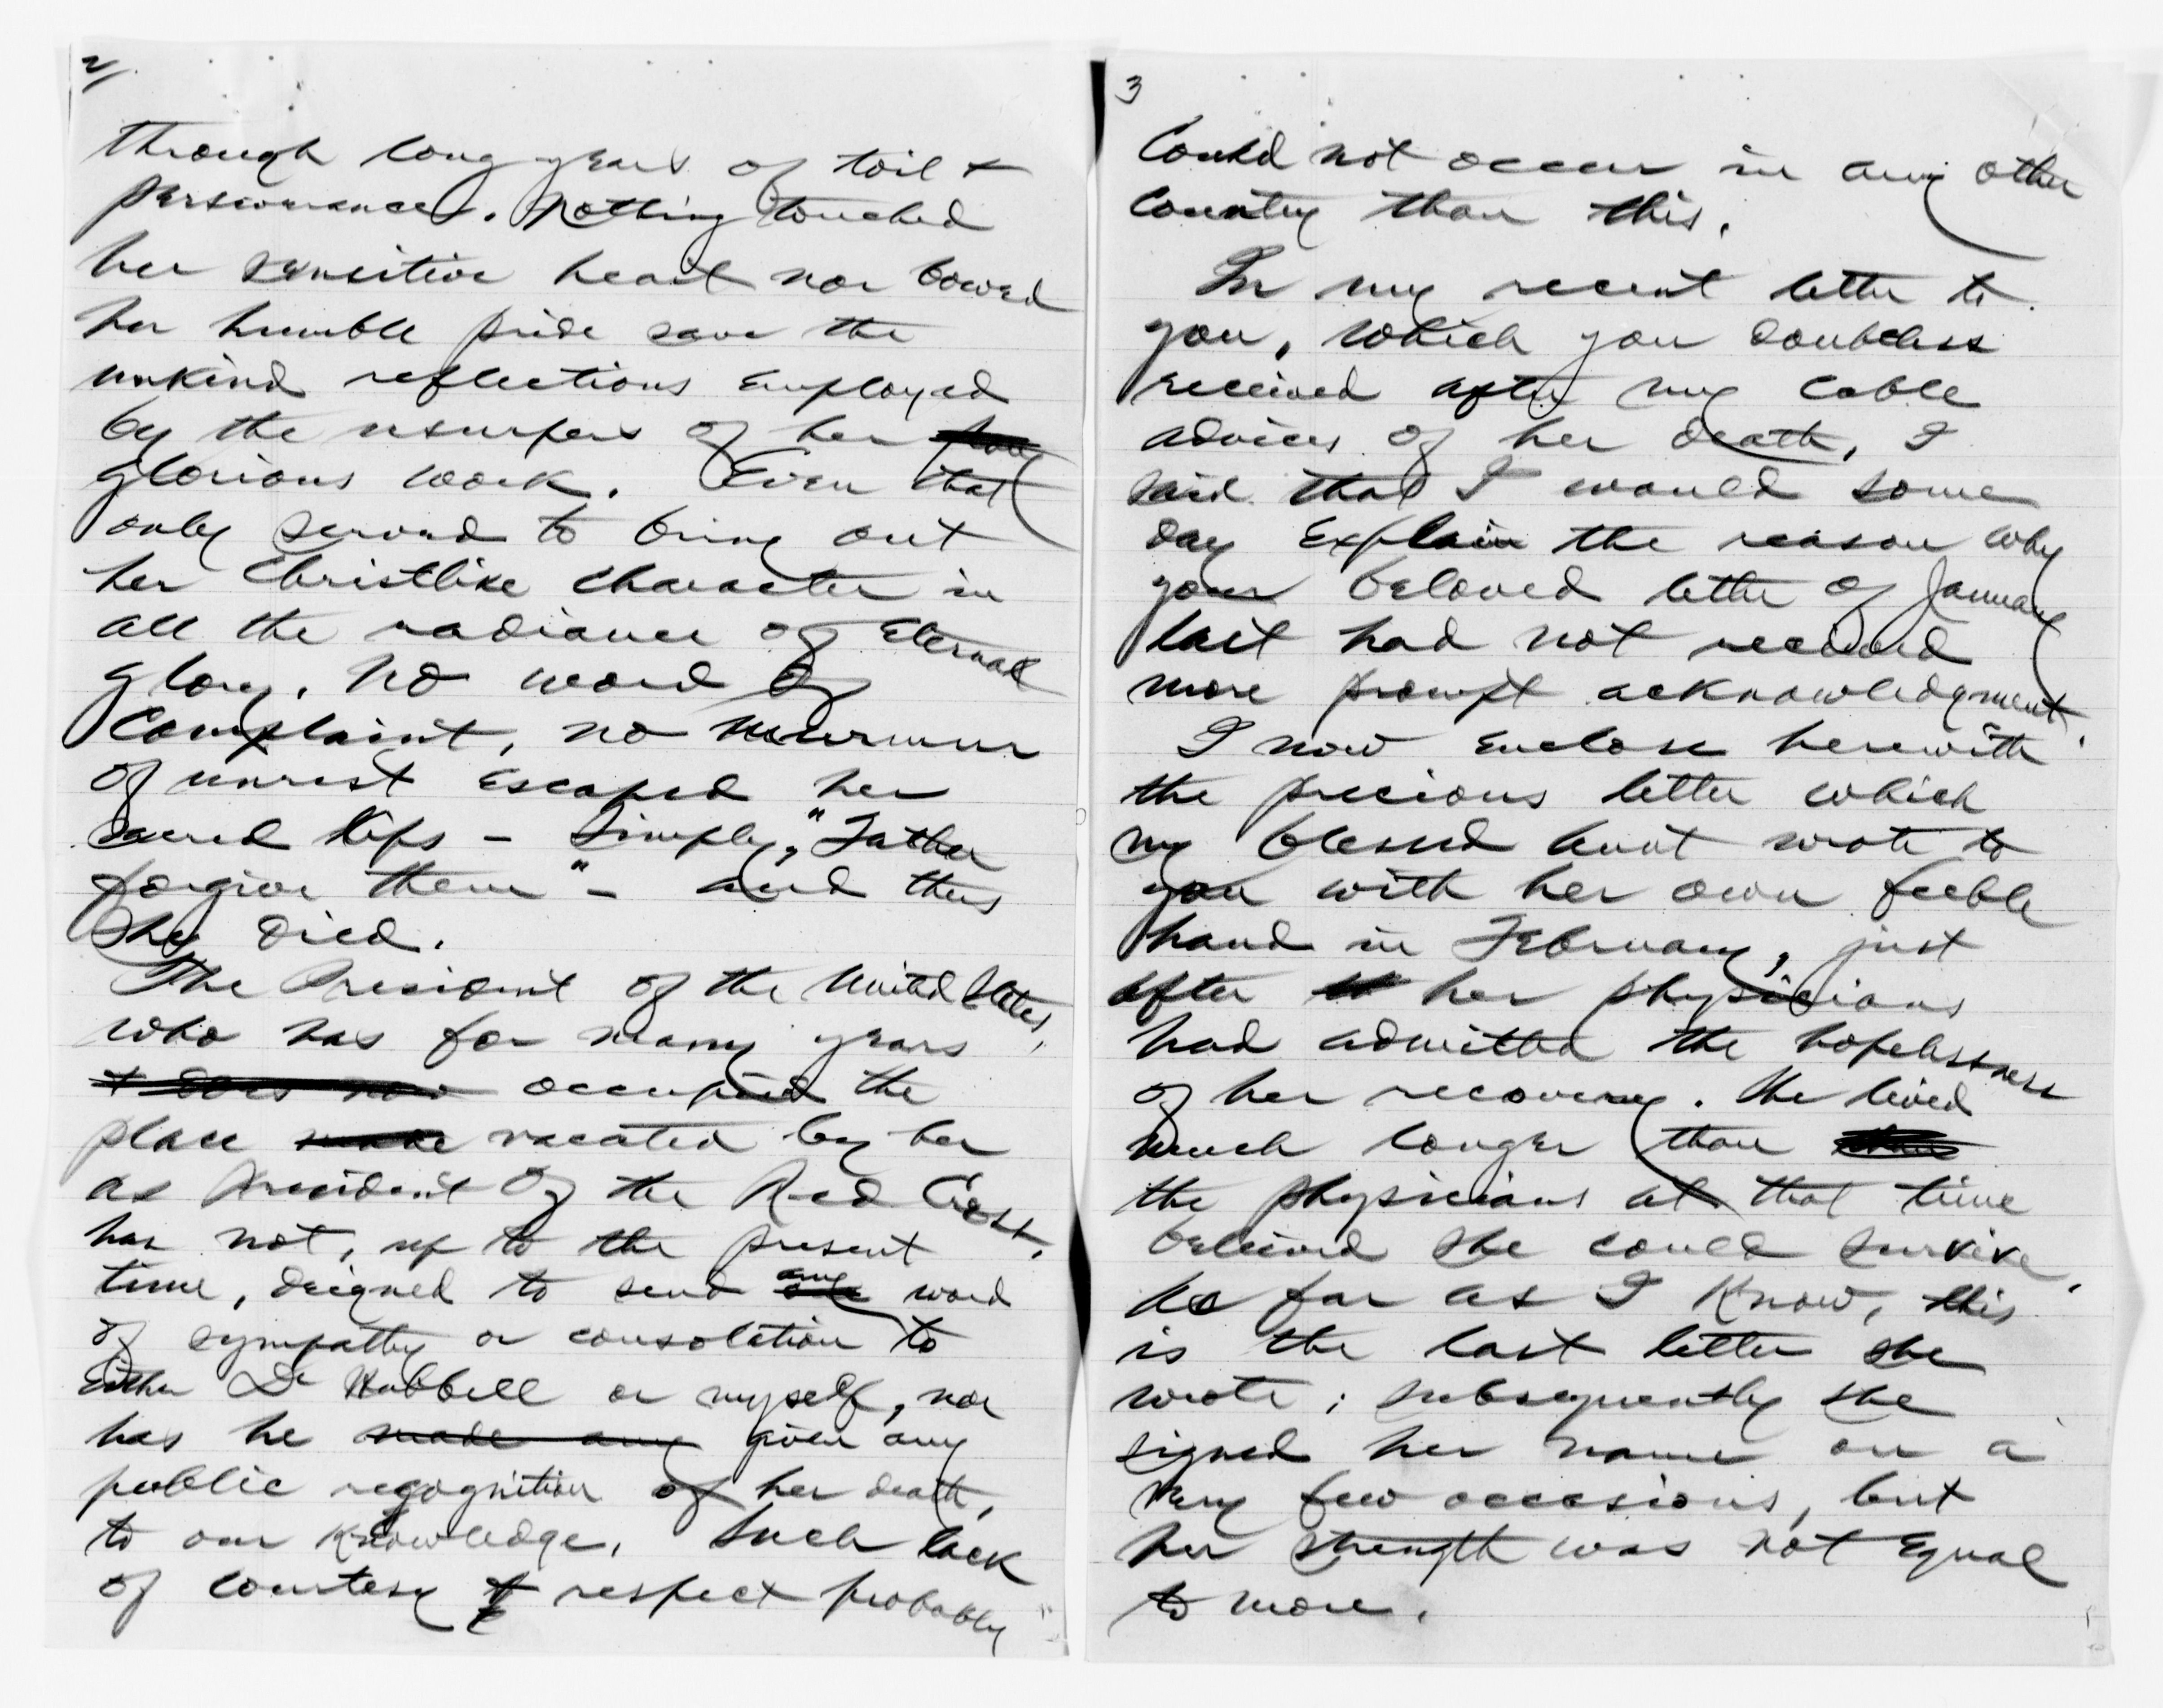 2/.
through long years of toil &
perseverance. Nothing touched
her sensitive heart nor bowed
her humble pride save the
unkind reflections employed
by the usurpers of her
glorious work. Even that
only served to bring out
her Christlike character in
all the radiance of Eternal
glory. No word of
Complaint, no murmur
of unrest escaped her
sacred lips – Simply, "Father
forgive them" – and thus
She died.
The President of the United States,
who has for many years,
& does now occupied the
place made vacated by her
as President of the Red Cross,
has not, up to the present
time, deigned to send any word
of sympathy or consolation to
Either Dr Hubbell or myself, nor
has he made any given any
public recognition of her death,
to our Knowledge. Such lack
of courtesy & respect probably
3
Could not occur in any other
Country than this.
In my recent letter to
you, which you doubtless
received after my Cable
advices of her death, I
said that I would some
day Explain the reason why
your beloved letter of January
last had not received
more prompt acknowledgment.
I now enclose herewith
the precious letter which
my blessed Aunt wrote to
you with her own feeble
hand in February, just
after her physicians
had admitted the hopelessness
of her recovery. She lived
much longer than
the physicians at that time
believed she could survive.
As far as I Know, this
is the last letter she
wrote; subsequently she
signed her name on a
very few occasions, but
her strength was not Equal
to more.